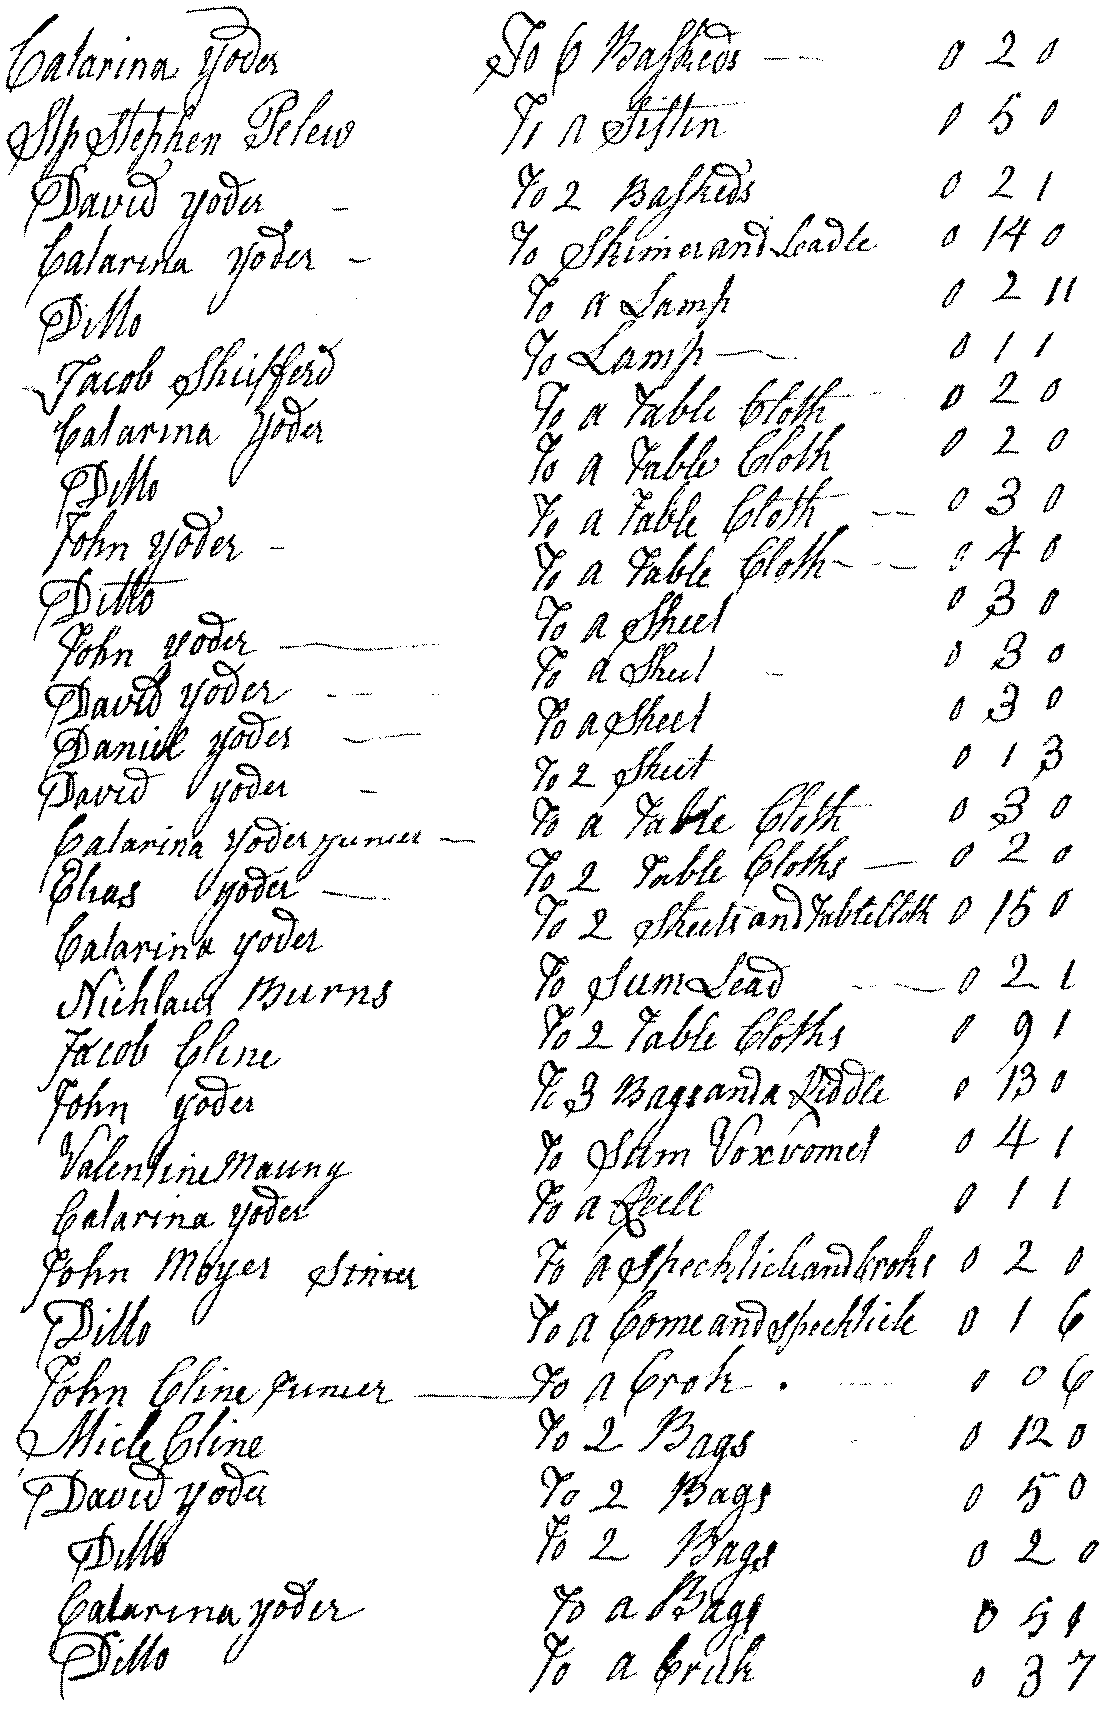 Catarina Yoder To 6 Baskeds 0 2 0
Stp Stephen Pelew To a Siftin 0 5 0
David Yoder To 2 Baskeds 0 2 1
Catarina Yoder To Skimer and Leadle 0 14 0
Ditto To a Lamp 0 2 11
Jacob Shufferd To Lamp 0 1 1
Catarina Yoder To a Table Cloth 0 2 0
Ditto To a Table Cloth 0 2 0
John Yoder To a Table Cloth 0 3 0
Ditto To a Table Cloth 0 4 0
John Yoder To a Sheet 0 3 0
David Yoder To a Sheet 0 3 0
Daniel Yoder To a Sheet 0 3 0
David Yoder To 2 Sheet 0 1 3
Catarina Yoder yunier To a Table Cloth 0 3 0
Elias Yoder To 2 Table Cloths 0 2 0
Catarina Yoder To 2 Sheets and Table Cloth 0 15 0
Nichlaus Burns To Sum Lead 0 2 1
Jacob Cline To 2 Table Cloths 0 9 1
John Yoder To 3 Bags and a Riddle 0 13 0
Valentine Mauny To Sum Voxromet 0 4 1
Catarina Yoder To a Reell 0 1 1
John Moyer Sinier To a Spechtick and Croks 0 2 0
Ditto To a Come and Spechtick 0 1 6
John Cline Junier To a Crok 0 0 6
Micle Cline To 2 Bags 0 12 0
David Yoder To 2 Bags 0 5 0
Ditto To 2 Bags 0 2 0
Catarina Yoder To a Bags 0 5 1
Ditto To a Cruk 0 3 7